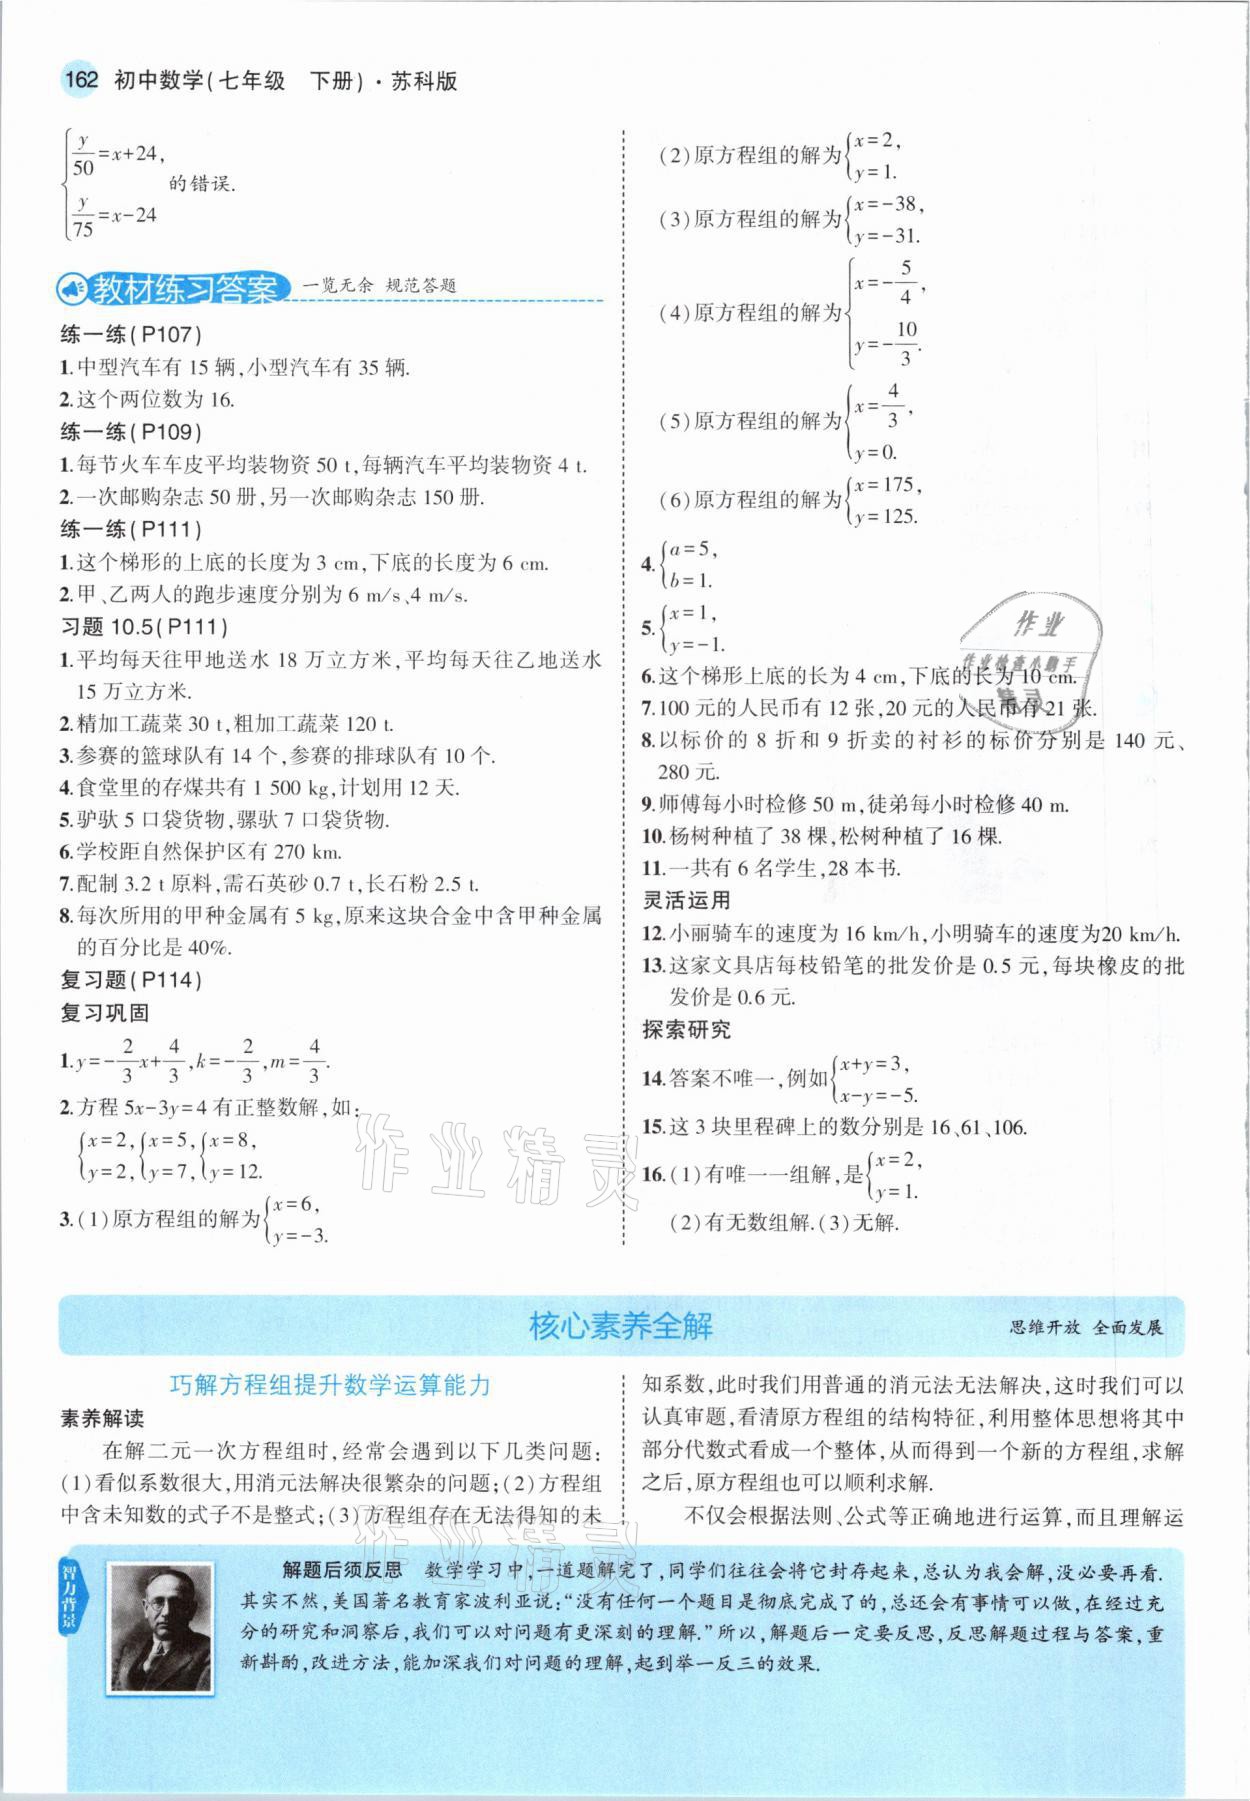 162 初中数学(七年级 下册)·苏科版
{y/50=x+24,
的错误.
y/75=x-24
教材练习答案 一览无余 规范答题
练一练(P107)
1.中型汽车有 15 辆,小型汽车有 35 辆.
2.这个两位数为 16.
练一练(P109)
1.每节火车车皮平均装物资 50 t,每辆汽车平均装物资 4 t.
2.一次邮购杂志 50 册,另一次邮购杂志 150 册.
练一练(P111)
1.这个梯形的上底的长度为 3 cm,下底的长度为 6 cm.
2.甲、乙两人的跑步速度分别为 6 m/s、4 m/s.
习题 10.5(P111)
1.平均每天往甲地送水 18 万立方米,平均每天往乙地送水
15 万立方米.
2.精加工蔬菜 30 t,粗加工蔬菜 120 t.
3.参赛的篮球队有 14 个,参赛的排球队有 10 个.
4.食堂里的存煤共有 1 500 kg,计划用 12 天.
5.驴驮 5 口袋货物,骡驮 7 口袋货物.
6.学校距自然保护区有 270 km.
7.配制 3.2 t 原料,需石英砂 0.7 t,长石粉 2.5 t.
8.每次所用的甲种金属有 5 kg,原来这块合金中含甲种金属
的百分比是 40%.
复习题(P114)
复习巩固
1.y=-2/3x+4/3,k=-2/3,m=4/3.
2.方程 5x-3y=4 有正整数解,如:
{x=2, {x=5, {x=8,
y=2, y=7, y=12.
3.(1)原方程组的解为{x=6,
y=-3.
(2)原方程组的解为{x=2,
y=1.
(3)原方程组的解为{x=-38,
y=-31.
(4)原方程组的解为{x=-5/4,
y=-10/3.
(5)原方程组的解为{x=4/3,
y=0.
(6)原方程组的解为{x=175,
y=125.
4.{a=5,
b=1.
5.{x=1,
y=-1.
6.这个梯形上底的长为 4 cm,下底的长为 10 cm.
7.100 元的人民币有 12 张,20 元的人民币有 21 张.
8.以标价的 8 折和 9 折卖的衬衫的标价分别是 140 元、
280 元.
9.师傅每小时检修 50 m,徒弟每小时检修 40 m.
10.杨树种植了 38 棵,松树种植了 16 棵.
11.一共有 6 名学生,28 本书.
灵活运用
12.小丽骑车的速度为 16 km/h,小明骑车的速度为20 km/h.
13.这家文具店每枝铅笔的批发价是 0.5 元,每块橡皮的批
发价是 0.6 元.
探索研究
14.答案不唯一,例如{x+y=3,
x-y=-5.
15.这 3 块里程碑上的数分别是 16、61、106.
16.(1)有唯一一组解,是{x=2,
y=1.
(2)有无数组解.(3)无解.
作业
作业检查小助手
精灵
作业精灵
核心素养全解 思维开放 全面发展
巧解方程组提升数学运算能力
素养解读
在解二元一次方程组时,经常会遇到以下几类问题:
(1)看似系数很大,用消元法解决很繁杂的问题;(2)方程组
中含未知数的式子不是整式;(3)方程组存在无法得知的未
知系数,此时我们用普通的消元法无法解决,这时我们可以
认真审题,看清原方程组的结构特征,利用整体思想将其中
部分代数式看成一个整体,从而得到一个新的方程组,求解
之后,原方程组也可以顺利求解.
不仅会根据法则、公式等正确地进行运算,而且理解运
作业精灵
智力背景
解题后须反思 数学学习中,一道题解完了,同学们往往会将它封存起来,总认为我会解,没必要再看.
其实不然,美国著名教育家波利亚说:“没有任何一个题目是彻底完成了的,总还会有事情可以做,在经过充
分的研究和洞察后,我们可以对问题有更深刻的理解.”所以,解题后一定要反思,反思解题过程与答案,重
新斟酌,改进方法,能加深我们对问题的理解,起到举一反三的效果.